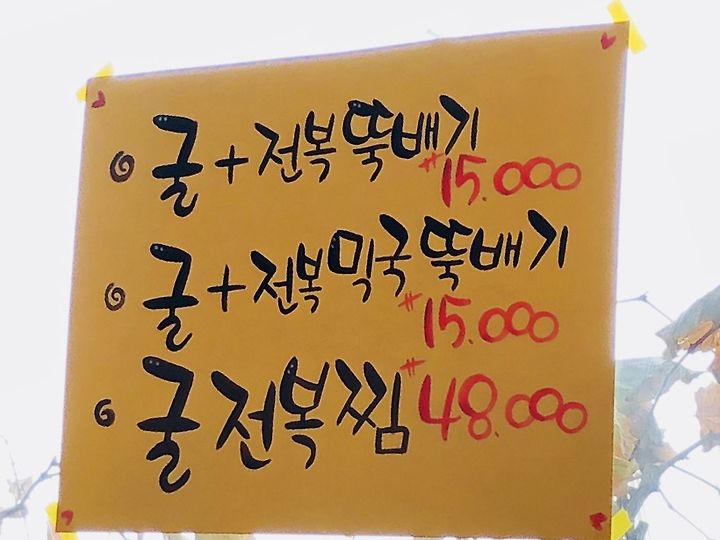 굴+전복뚝배기
#15.000
굴+전복믹국뚝배기
#15.000
굴전복찜 #48.000